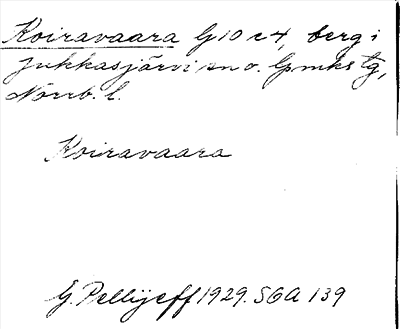 Koiravaara G10 c4, berg i
Jukkasjärvi sn o. Lpmks tg,
Norrb. l.
Koiravaara
G. Pellijeff 1929. SGA 139